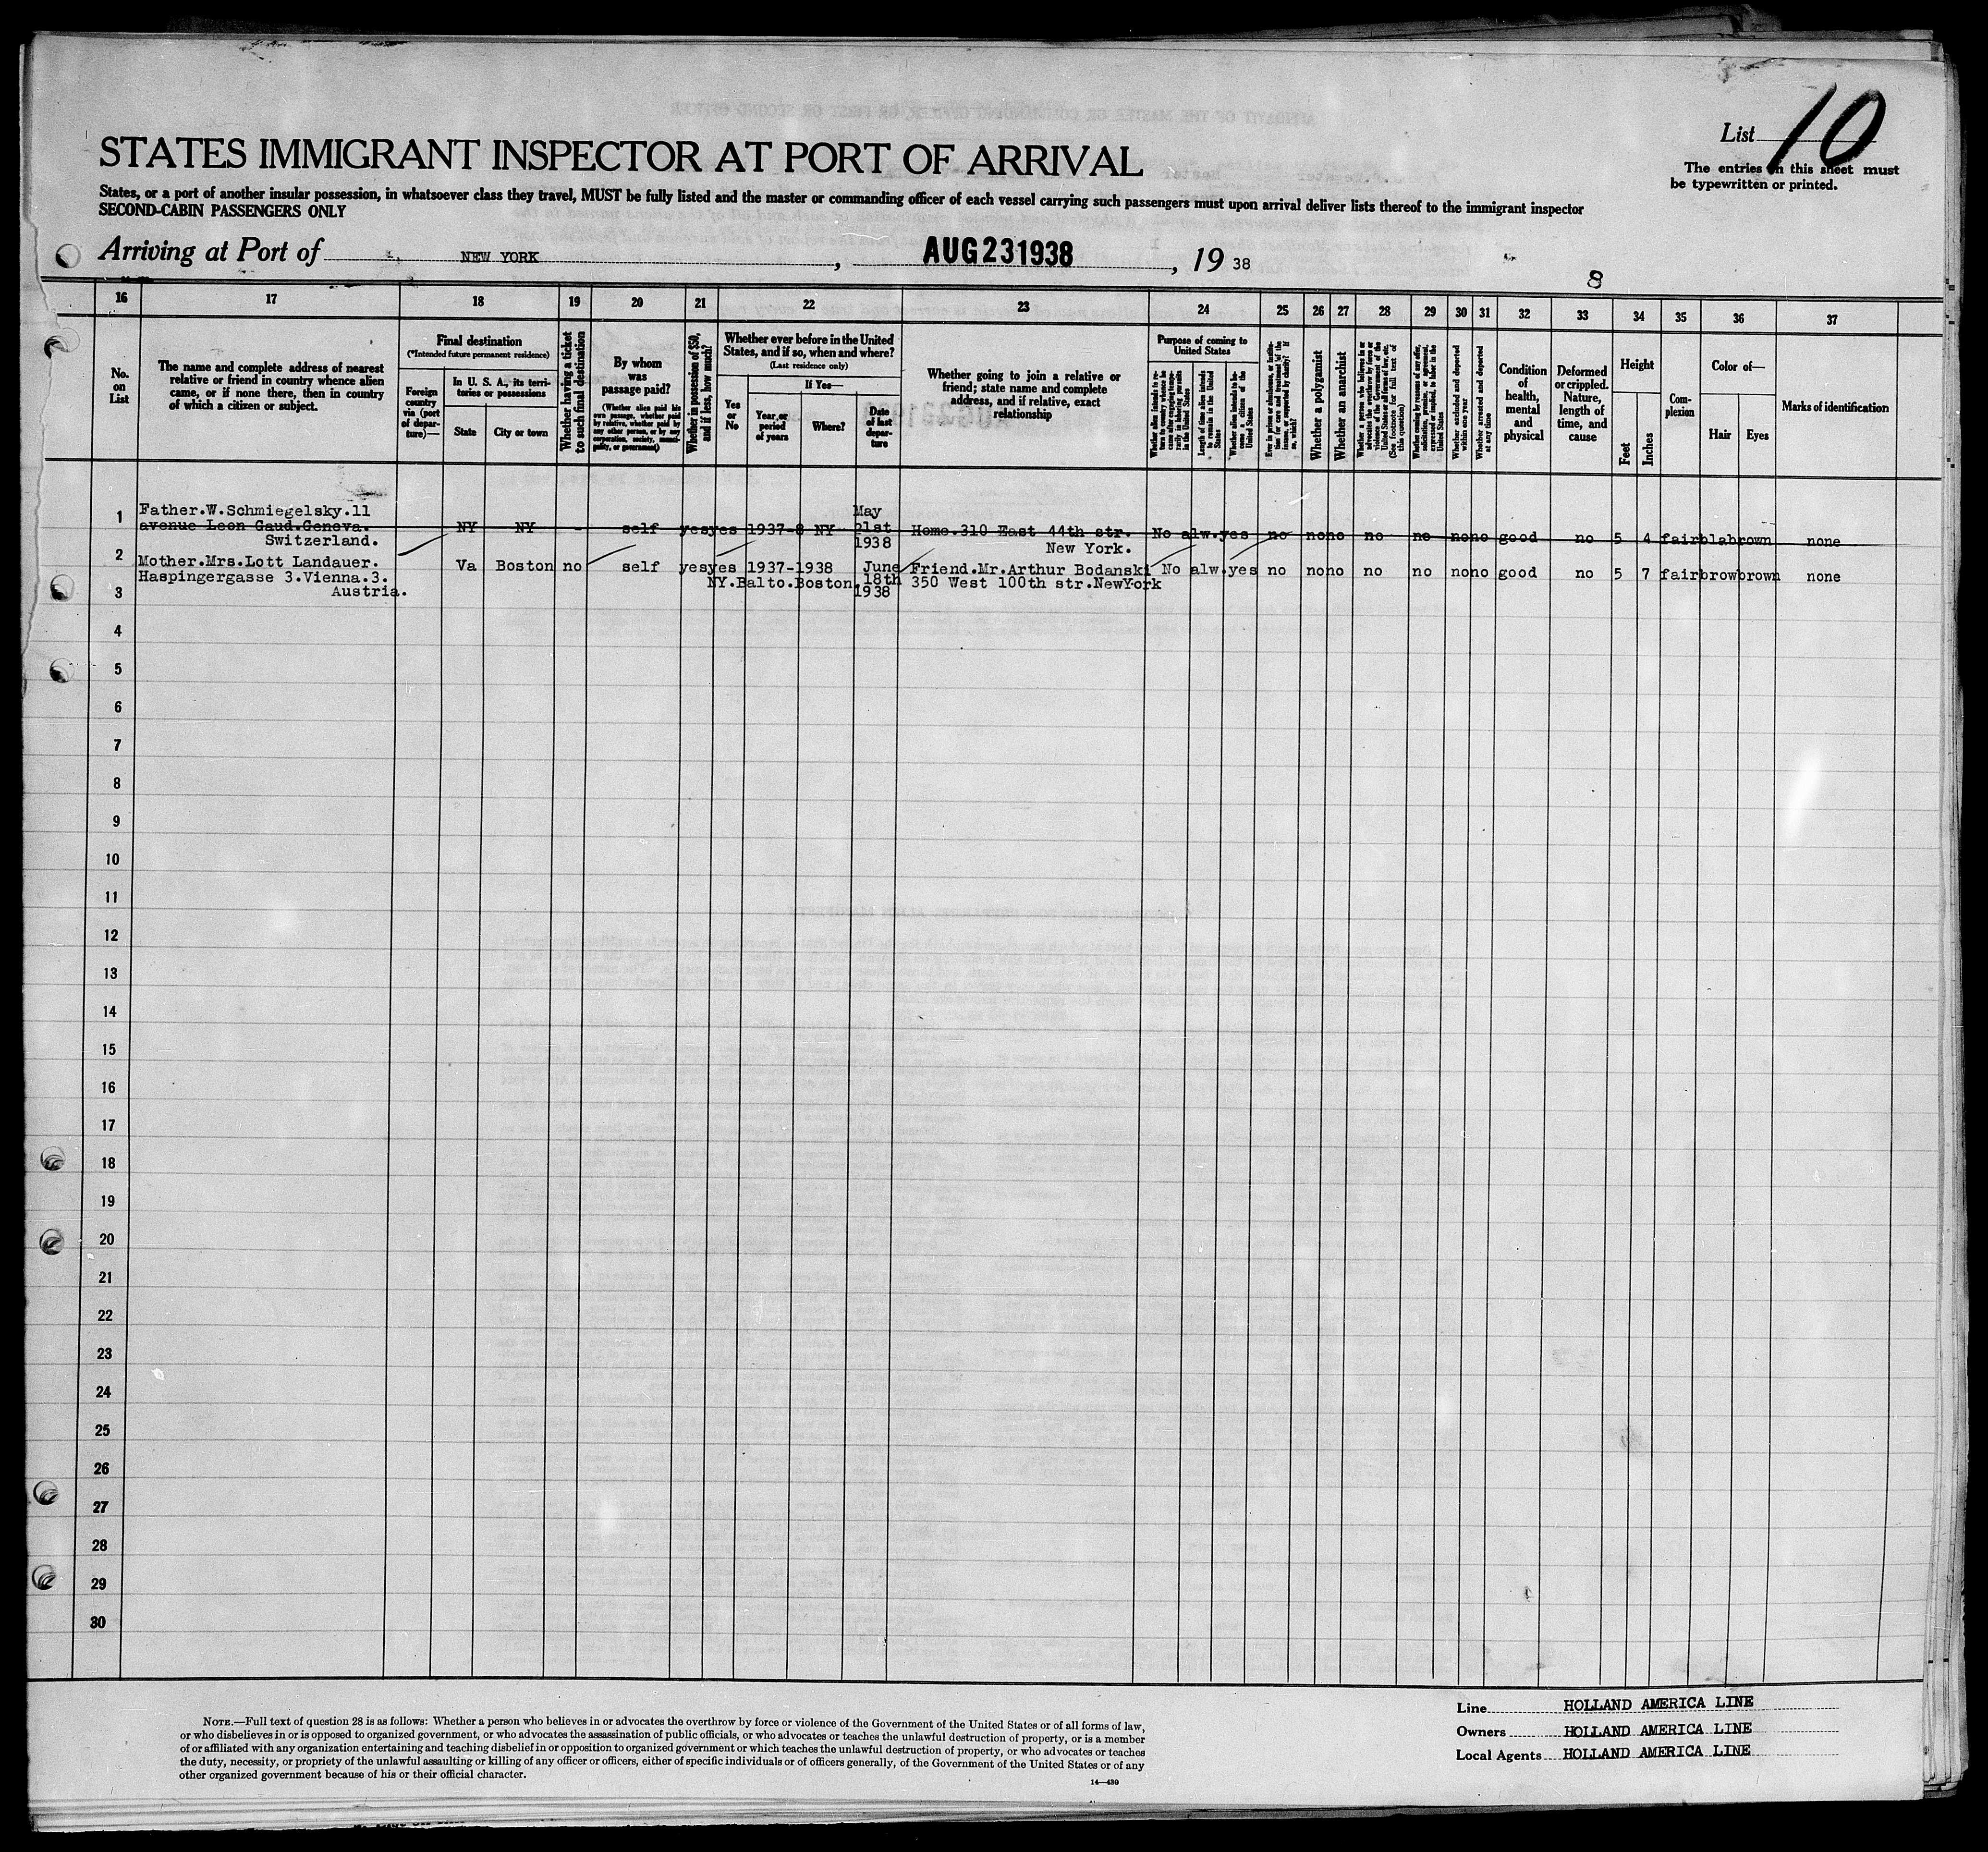 List 10
The entries on this sheet must
be typewritten or printed.
STATES IMMIGRANT INSPECTOR AT PORT OF ARRIVAL
States, or a port of another insular possession, in whatsoever class they travel, MUST be fully listed and the master or commanding officer of each vessel carrying such passengers must upon arrival deliver lists thereof to the immigrant inspector
SECOND-CABIN PASSENGERS ONLY
Arriving at Port of NEW YORK, AUG 23 1938, 19 38
8
16 17 18 19 20 21 22 23 24 25 26 27 28 29 30 31 32 33 34 35 36 37
No. on List
The name and complete address of nearest
relative or friend in country whence alien
came, or if none there, then in country
of which a citizen or subject.
Final destination
(*Intended future permanent residence)
Foreign country via (port of departure)—
In U. S. A., its territories or possessions
State
City or town
Whether having a ticket to such final destination
By whom was passage paid?
(Whether alien paid his own passage, whether paid by relative, whether paid by any other person, or by any corporation, society, municipality, or government)
Whether in possession of $50, and if less, how much?
Whether ever before in the United
States, and if so, when and where?
(Last residence only)
Yes or No
If Yes—
Year or period of years
Where?
Date of last departure
Whether going to join a relative or
friend; state name and complete
address, and if relative, exact
relationship
Purpose of coming to United States
Whether alien intends to return to country whence he came after engaging temporarily in laboring pursuits in the United States
Length of time alien intends to remain in the United States
Whether alien intends to become a citizen of the United States
Ever in prison or almshouse, or institution for care and treatment of the insane, or supported by charity? If so, which?
Whether a polygamist
Whether an anarchist
Whether a person who believes in or advocates the overthrow by force or violence of the Government of the United States or all forms of law, etc. (See footnote for full text of this question)
Whether coming by reason of any offer, solicitation, promise, or agreement, expressed or implied, to labor in the United States
Whether excluded and deported within one year
Whether arrested and deported at any time
Condition of health, mental and physical
Deformed or crippled. Nature, length of time, and cause
Height
Feet
Inches
Complexion
Color of—
Hair
Eyes
Marks of identification
1 Father.W.Schmiegelsky.11
avenue Leon Gaud.Geneva.
Switzerland.
NY NY - self yes yes 1937-8 NY May 21st 1938 Home.310 East 44th str.
New York.
No alw. yes no no no no no no no good no 5 4 fair bla brown none
2 Mother.Mrs.Lott Landauer.
Haspingergasse 3.Vienna.3.
Austria.
Va Boston no self yes yes 1937-1938
NY.Balto.Boston. June 18th 1938
Friend.Mr.Arthur Bodanski
350 West 100th str.NewYork
No alw. yes no no no no no no no good no 5 7 fair brow brown none
3
4
5
6
7
8
9
10
11
12
13
14
15
16
17
18
19
20
21
22
23
24
25
26
27
28
29
30
NOTE.—Full text of question 28 is as follows: Whether a person who believes in or advocates the overthrow by force or violence of the Government of the United States or of all forms of law,
or who disbelieves in or is opposed to organized government, or who advocates the assassination of public officials, or who advocates or teaches the unlawful destruction of property, or is a member
of or affiliated with any organization entertaining and teaching disbelief in or opposition to organized government or which teaches the unlawful destruction of property, or who advocates or teaches
the duty, necessity, or propriety of the unlawful assaulting or killing of any officer or officers, either of specific individuals or of officers generally, of the Government of the United States or of any
other organized government because of his or their official character.
14—430
Line HOLLAND AMERICA LINE
Owners HOLLAND AMERICA LINE
Local Agents HOLLAND AMERICA LINE